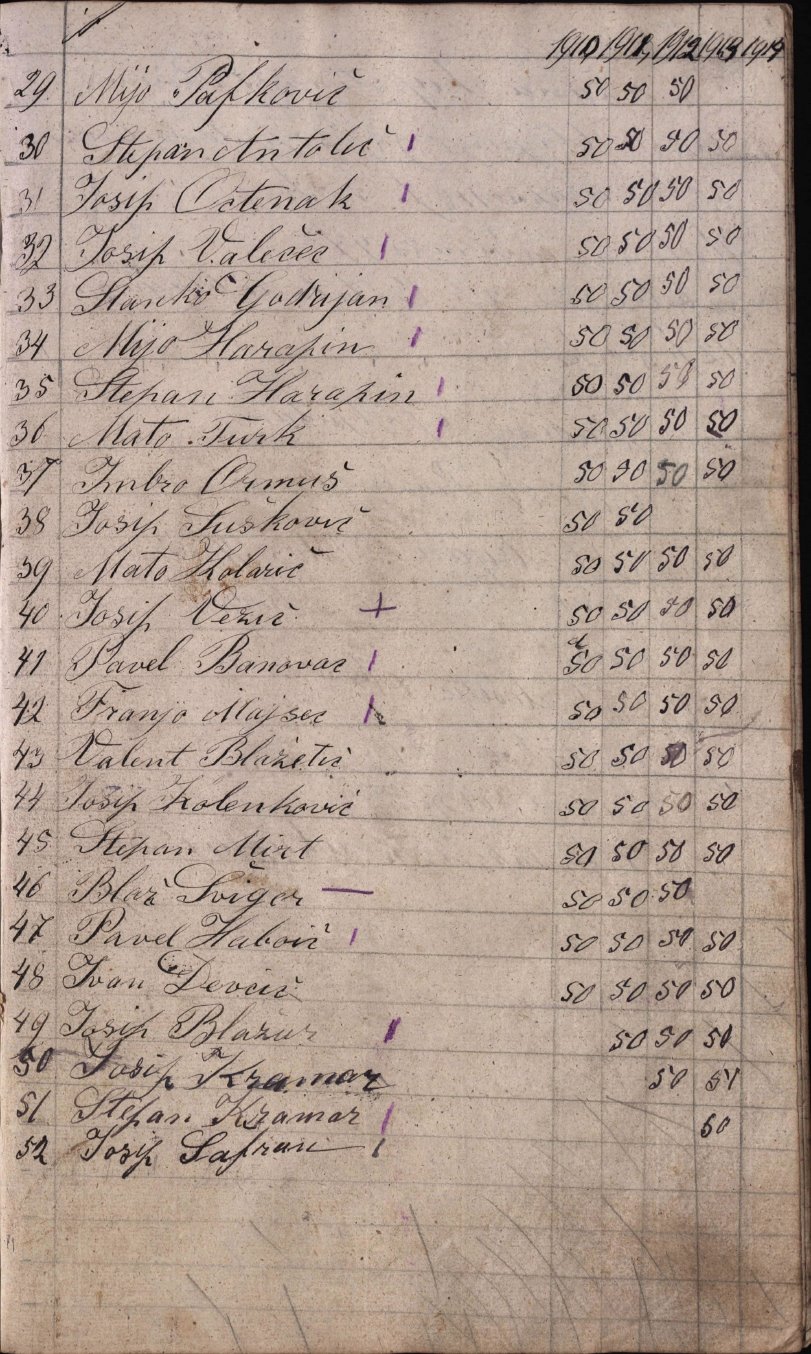 1910, 1911, 1912 1913 1914
29 Mijo Pafković 50 50 50
30 Stepan Antolić 50 50 50 50
31 Josip Octenak 50 50 50 50
32 Josip Valečec 50 50 50 50
33 Stanko Godrijan 50 50 50 50
34 Mijo Harapin 50 50 50 50
35 Stepan Harapin 50 50 50 50
36 Mato Turk 50 50 50 50
37 Imbro Ormuš 50 50 50 50
38 Josip Sušković 50 50
39 Mato Kolarić 50 50 50 50
40 Josip Vežić + 50 50 50 50
41 Pavel Banovac 50 50 50 50
42 Franjo Majsec 50 50 50 50
43 Valent Blažetić 50 50 50 50
44 Josip Kolenković 50 50 50 50
45 Stepan Mirt 50 50 50 50
46 Blaž Švigor — 50 50 50
47 Pavel Haboić 50 50 50 50
48 Ivan Devčić 50 50 50 50
49 Josip Blažur 50 50 50
50 Josip Kramar 50 51
51 Stepan Kramar 50
52 Josip Safran